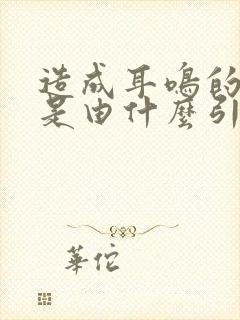 造成耳鳴的
是由什麼引
華佗